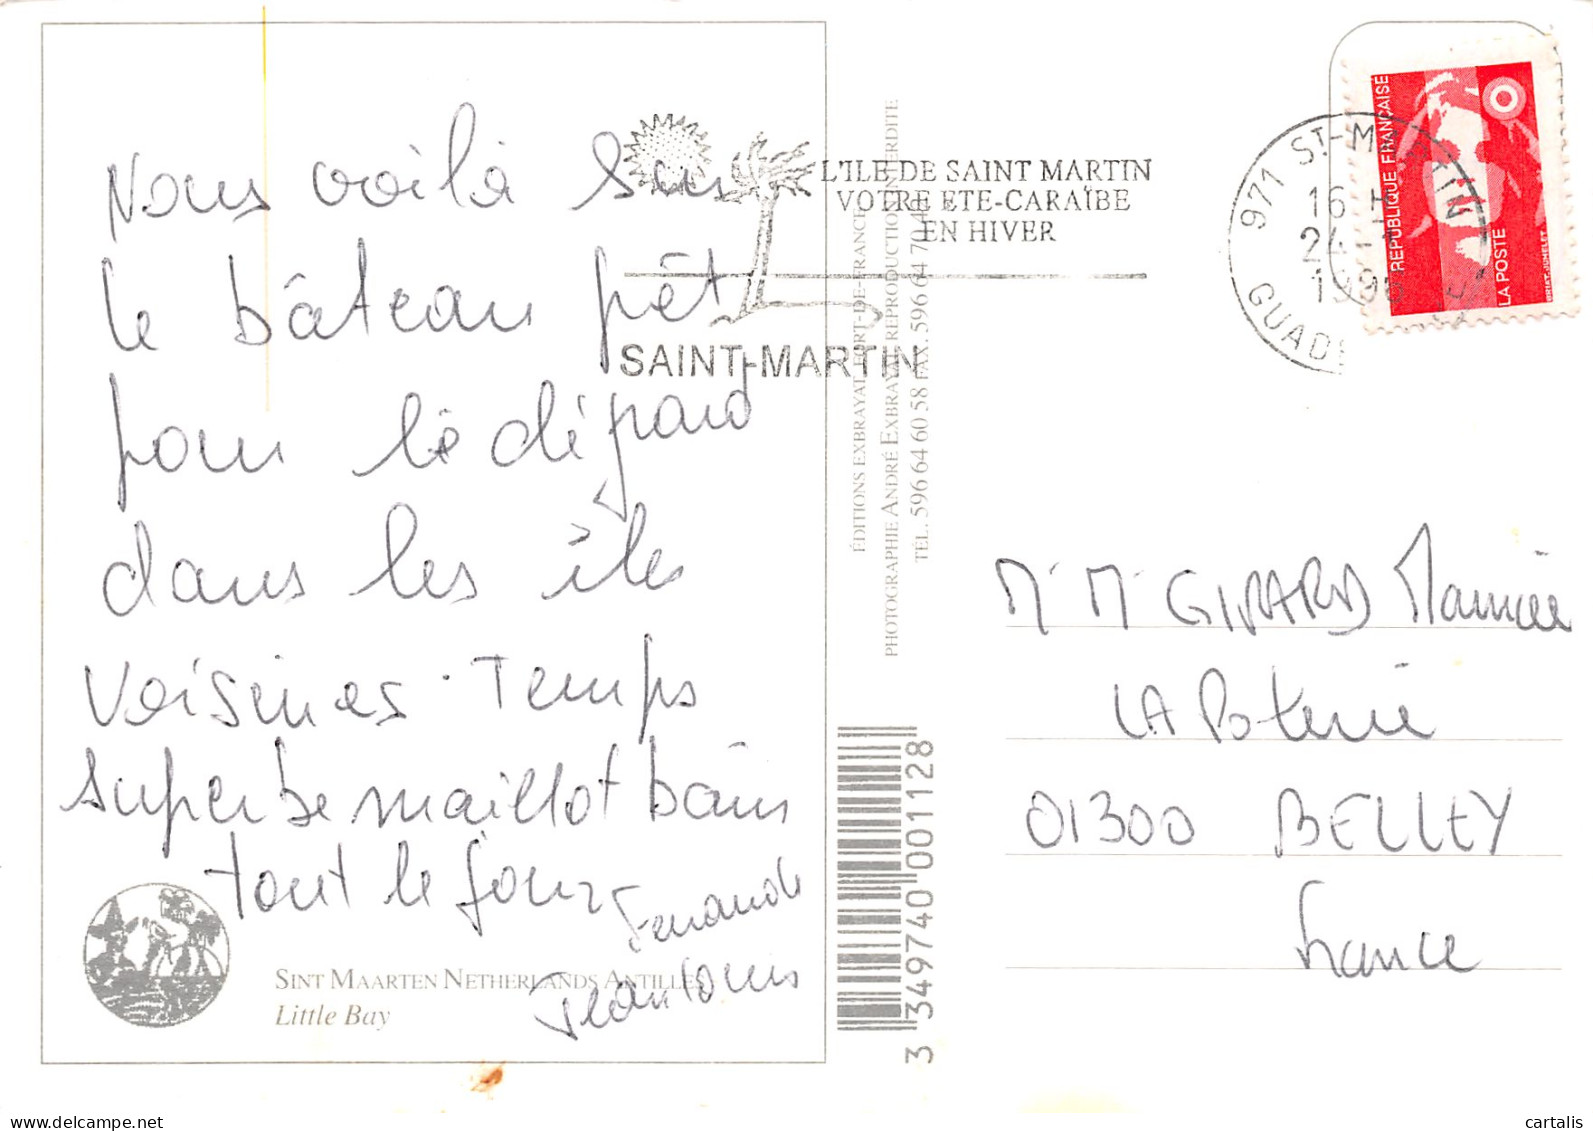 Nous voilà sur
le bâteau pêt
pour le dépard
dans les îles
voisines. Temps
superbe maillot bain
tout le jour
Fernande
Jean Louis
SINT MAARTEN NETHERLANDS ANTILLES
Little Bay
L'ILE DE SAINT MARTIN
VOTRE ETE-CARAÏBE
EN HIVER
SAINT-MARTIN
ÉDITIONS EXBRAYAT FORT-DE-FRANCE
PHOTOGRAPHIE ANDRÉ EXBRAYAT REPRODUCTION INTERDITE
TÉL. 596 64 60 58 FAX. 596 64 70 42
3 349740 001128
971 ST-MARTIN
16 H
24
199
GUAD
REPUBLIQUE FRANÇAISE
LA POSTE
BRIAT-JUMELET
M. M. GIRARD Maurice
LA Poterie
01300 BELLEY
France
cartalis
www.delcampe.net